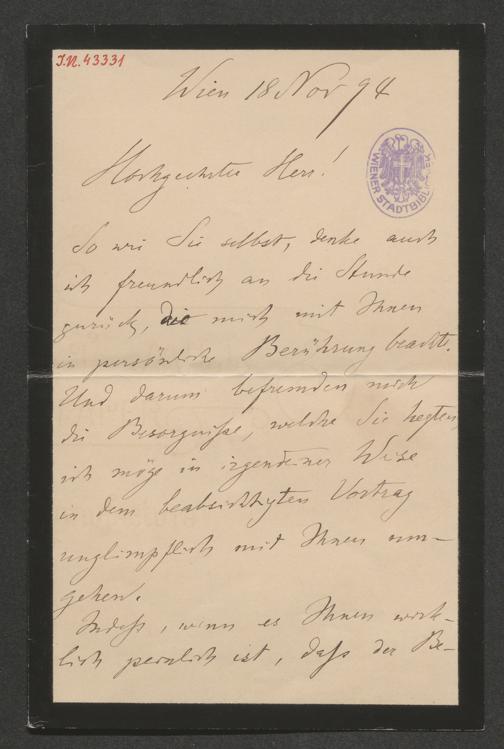 I.N. 43331
Wien 18 Nov 94
WIENER STADTBIBL
Hochgeehrter Herr!
So wie Sie selbst, denke auch
ich freundlich an die Stunde
zurück, die mich mit Ihnen
in persönliche Berührung bracht.
Und darum befremden mich
die Besorgniße, welche Sie hegten,
ich möge in irgendeiner Weise
in dem beabsichtigten Vortrag
unglimpflich mit Ihnen um-
gehen.
Indeß, wenn es Ihnen wirk-
lich peinlich ist, daß der Be-